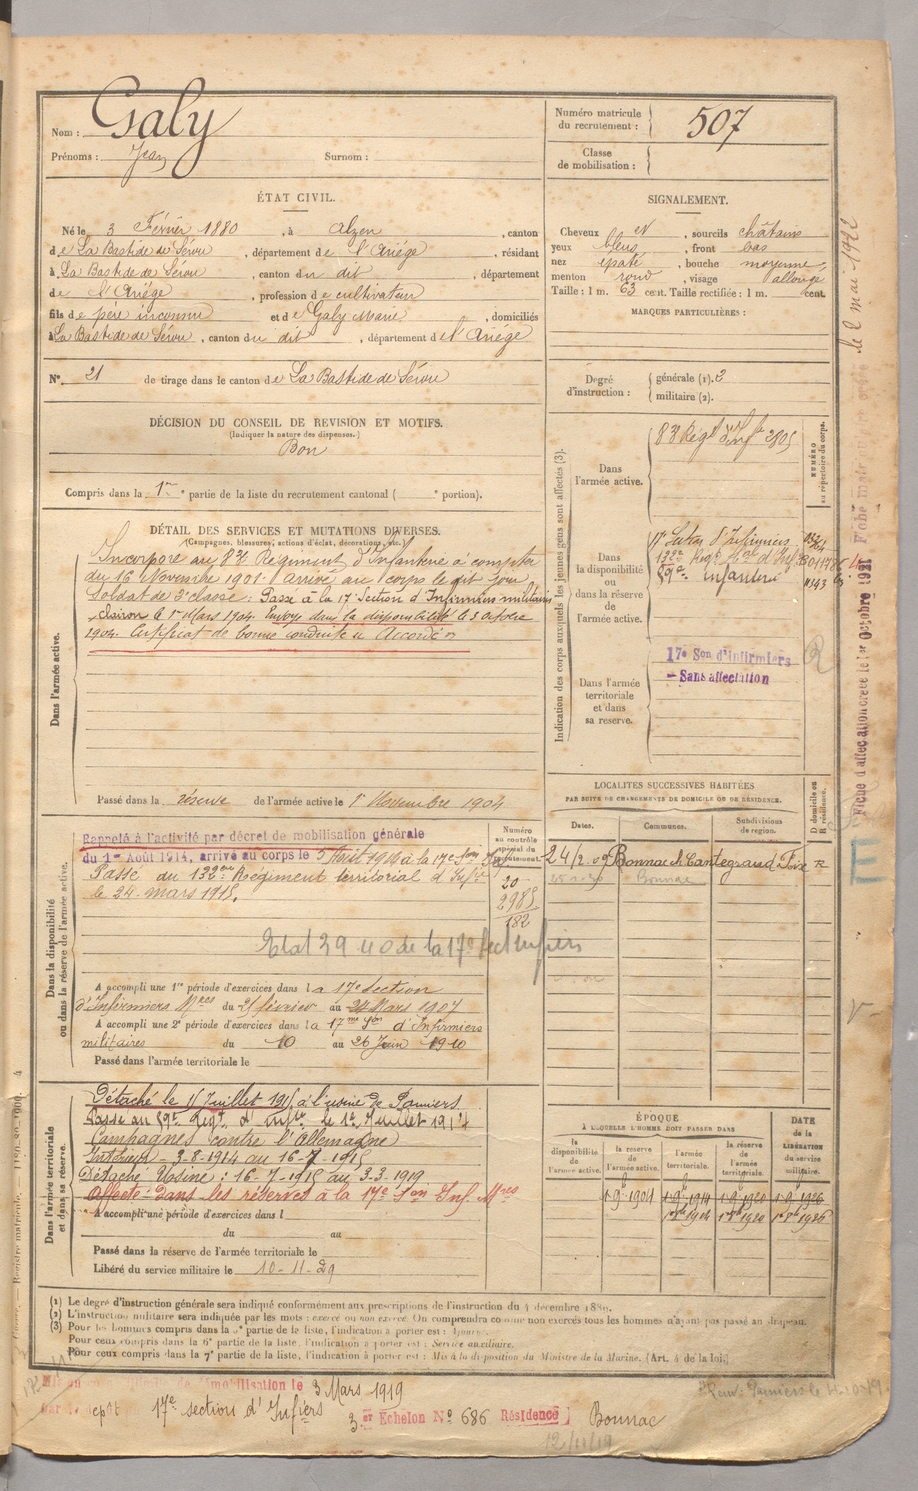 Nom : Galy
Prénoms : Jean Surnom :
Numéro matricule du recrutement : 507
Classe de mobilisation :
ÉTAT CIVIL.
Né le 3 Février 1880, à Alzen, canton
de La Bastide de Sérou, département de l'Ariège, résidant
à La Bastide de Sérou, canton du dit, département
de l'Ariège, profession de cultivateur
fils de père inconnu et de Galy Marie, domiciliés
à La Bastide de Sérou, canton du dit, département de l'Ariège
SIGNALEMENT.
Cheveux et, sourcils châtains
yeux bleus, front bas
nez épaté, bouche moyenne,
menton rond, visage allongé
Taille : 1 m. 63 cent. Taille rectifiée : 1 m. cent.
MARQUES PARTICULIÈRES :
N° 21 de tirage dans le canton de La Bastide de Sérou
Degré d'instruction : générale (1). 2
militaire (2).
DÉCISION DU CONSEIL DE REVISION ET MOTIFS.
(Indiquer la nature des dispenses.)
Bon
Compris dans la 1re partie de la liste du recrutement cantonal ( e portion).
DÉTAIL DES SERVICES ET MUTATIONS DIVERSES.
(Campagnes, blessures, actions d'éclat, décorations, etc.)
Dans l'armée active.
Incorporé au 83e Régiment d'Infanterie à compter
du 16 Novembre 1901. Arrivé au corps le dit jour
Soldat de 2e classe. Passé à la 17e Section d'Infirmiers militaires
clairon le 1er Mars 1904. Envoyé dans la disponibilité le 3 octobre
1904. Certificat de bonne conduite « Accordé »
Passé dans la réserve de l'armée active le 1er Novembre 1904
Indication des corps auxquels les jeunes gens sont affectés (3).
NUMÉRO au répertoire du corps.
Dans l'armée active.
83e Régt d'Inft 2805
Dans la disponibilité ou dans la réserve de l'armée active.
17e Section d'Infirmiers
132e Régt tal d'Inf
59e Infanterie
Dans l'armée territoriale et dans sa reserve.
17e Son d'Infirmiers
Sans affectation
Fiche d'affectation créée le 1er Octobre 1921
le 2 mai 1922
Dans la disponibilité ou dans la réserve de l'armée active.
Rappelé à l'activité par décret de mobilisation générale
du 1er Août 1914, arrivé au corps le 3 Août 1914 à la 17e Son Inf
Passé du 132eme Régiment territorial d'Infie
le 24 mars 1915.
Etat 39 40 de la 17e Sect Infiers
Numéro au contrôle spécial du recrutement.
20
2985
182
A accompli une 1re période d'exercices dans la 17e Section
d'Infirmiers Mres du 25 février au 24 Mars 1907
A accompli une 2e période d'exercices dans la 17me Son d'Infirmiers
militaires du 10 au 26 Juin 1910
Passé dans l'armée territoriale le
LOCALITÉS SUCCESSIVES HABITÉES
PAR SUITE DE CHANGEMENTS DE DOMICILE OU DE RÉSIDENCE.
D domicile ou R résidence.
Dates. Communes. Subdivisions de région.
24/2.09 Bonnac ch Cantegraud Foix R
Bonnac
Dans l'armée territoriale et dans sa réserve.
Détaché le 15 Juillet 1915 à l'usine de Pamiers
Passé au 59e Régt d'Inftie le 1er Juillet 1917
Campagnes contre l'Allemagne
Intérieur - 3-8-1914 au 16-7-1915
Détaché Usine : 16-7-1915 au 3-3-1919
Affecté dans les réserves à la 17e Son Inf. Mres
A accompli une période d'exercices dans l
du au
Passé dans la réserve de l'armée territoriale le
Libéré du service militaire le 10-11-29
ÉPOQUE
À LAQUELLE L'HOMME DOIT PASSER DANS
DATE de la LIBÉRATION du service militaire.
la disponibilité de l'armée active. la réserve de l'armée active. l'armée territoriale. la réserve de l'armée territoriale.
1 9bre 1904 1 9bre 1914 1 9bre 1920 1 9bre 1926
1er 8bre 1914 1er 8bre 1920 1er 8bre 1926
(1) Le degré d'instruction générale sera indiqué conformément aux prescriptions de l'instruction du 4 décembre 1889.
(2) L'instruction militaire sera indiquée par les mots : exercé ou non exercé. On comprendra comme non exercés tous les hommes n'ayant pas passé au drapeau.
(3) Pour les hommes compris dans la 5e partie de la liste, l'indication à porter est : Ajourné.
Pour ceux compris dans la 6e partie de la liste, l'indication à porter est : Service auxiliaire.
Pour ceux compris dans la 7e partie de la liste, l'indication à porter est : Mis à la disposition du Ministre de la Marine. (Art. 4 de la loi.)
Mis en congé de démobilisation le 3 Mars 1919
par le dépôt 17e section d'Infiers
3 er Echelon N° 686 Résidence Bonnac
12/11/19